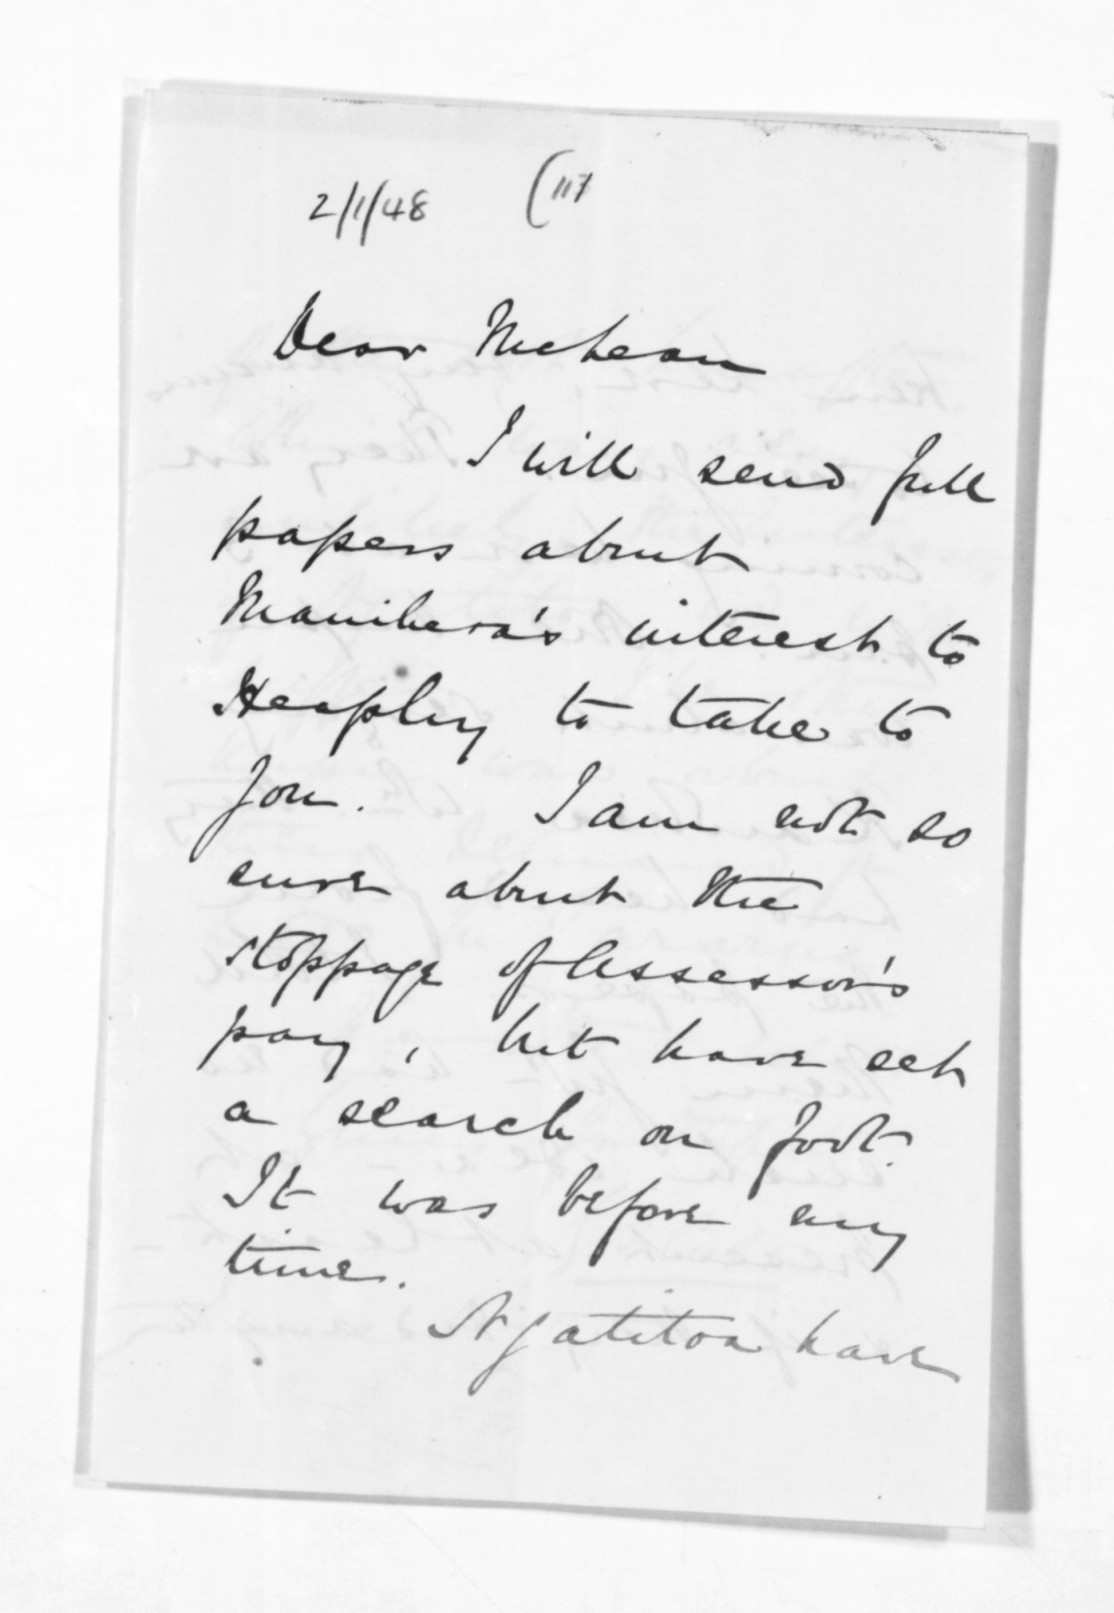 2/1/48 (117
Dear McLean
I will send full
papers about
Manihera's interest to
Heaphy to take to
you. I am not so
sure about the
stoppage of Assessor's
pay, but have set
a search on foot.
It was before my
time.
Ngatitoa have